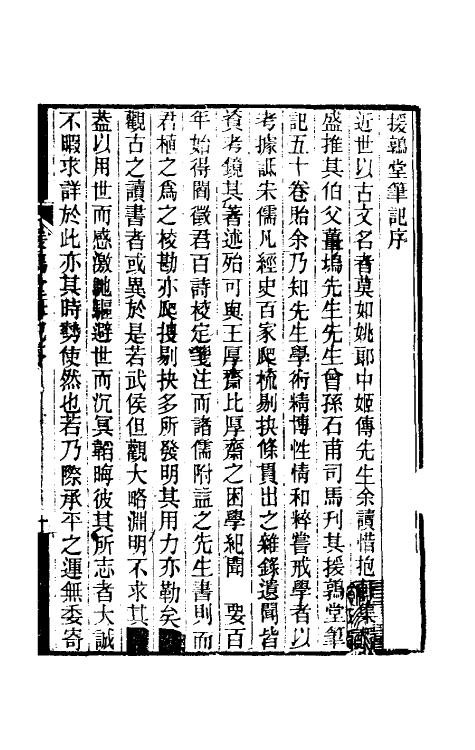 援鶉堂筆記序
近世以古文名者莫如姚郎中姬傳先生余讀惜抱軒集
盛推其伯父薑塢先生先生曾孫石甫司馬刋其援鶉堂筆
記五十卷貽余乃知先生學術精博性情和粹嘗戒學者以
考據詆宋儒凡經史百家爬梳剔抉條貫出之雜錄遺聞皆
資考鏡其著述殆可與王厚齋比厚齋之困學紀聞 婁百
年始得閻徵君百詩校定箋注而諸儒附益之先生書則而
君植之爲之校勘亦爬搜剔抉多所發明其用力亦勤矣
觀古之讀書者或異於是若武侯但觀大略淵明不求其
蓋以用世而感激馳驅避世而沉冥韜晦彼其所志者大誠
不暇求詳於此亦其時勢使然也若乃際承平之運無委寄